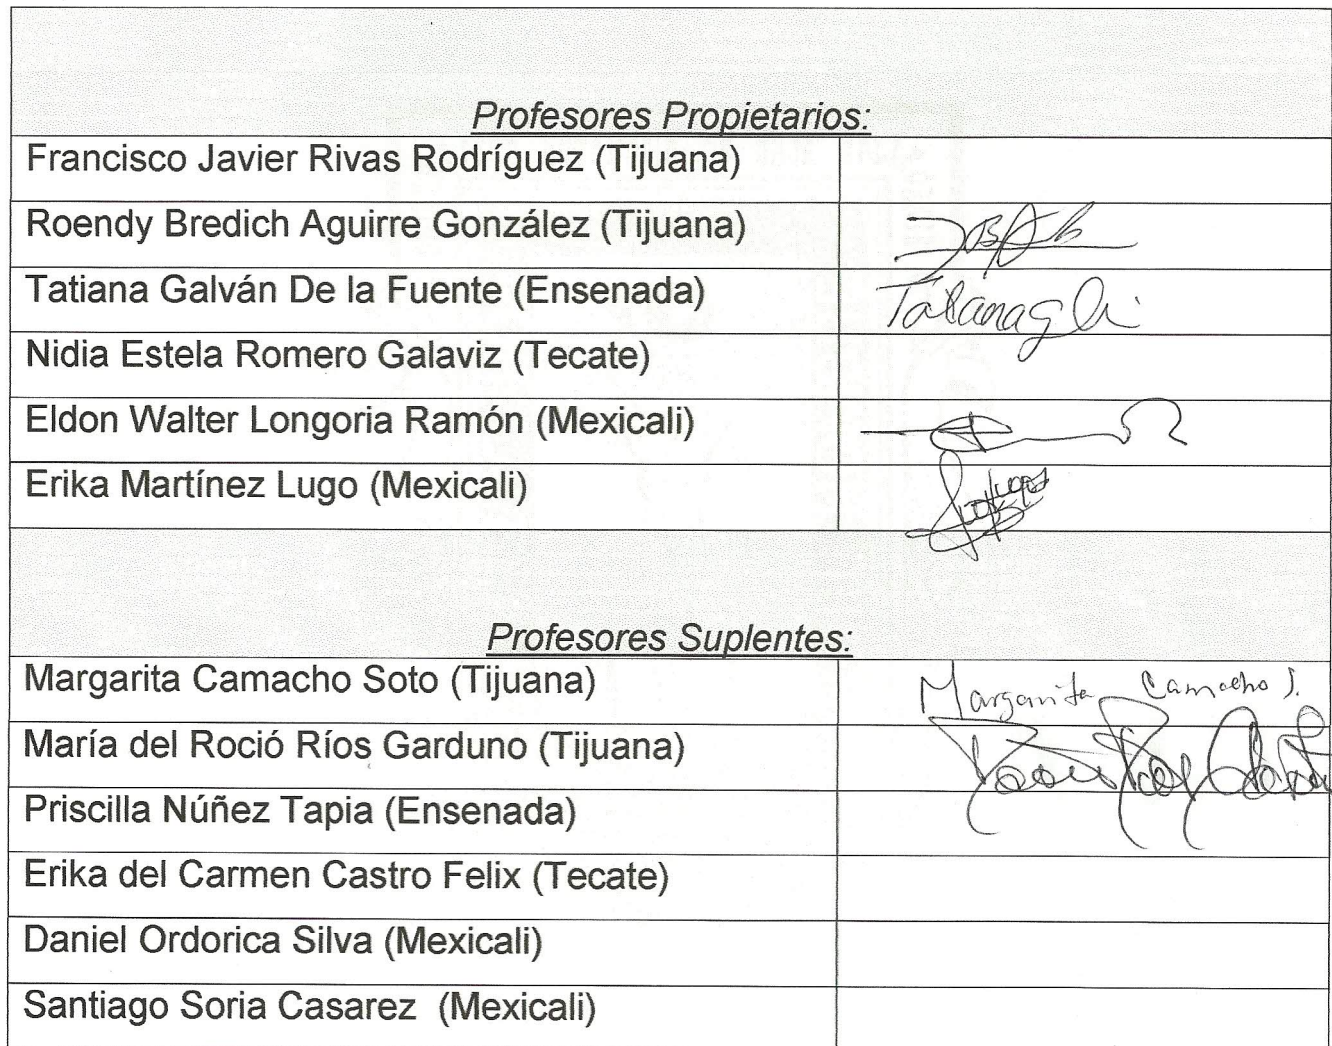 Profesores Propietarios:
Francisco Javier Rivas Rodríguez (Tijuana)
Roendy Bredich Aguirre González (Tijuana)
Tatiana Galván De la Fuente (Ensenada)
Nidia Estela Romero Galaviz (Tecate)
Eldon Walter Longoria Ramón (Mexicali)
Erika Martínez Lugo (Mexicali)
Profesores Suplentes:
Margarita Camacho Soto (Tijuana)
Margarita Camacho S.
María del Roció Ríos Garduno (Tijuana)
Priscilla Núñez Tapia (Ensenada)
Erika del Carmen Castro Felix (Tecate)
Daniel Ordorica Silva (Mexicali)
Santiago Soria Casarez (Mexicali)